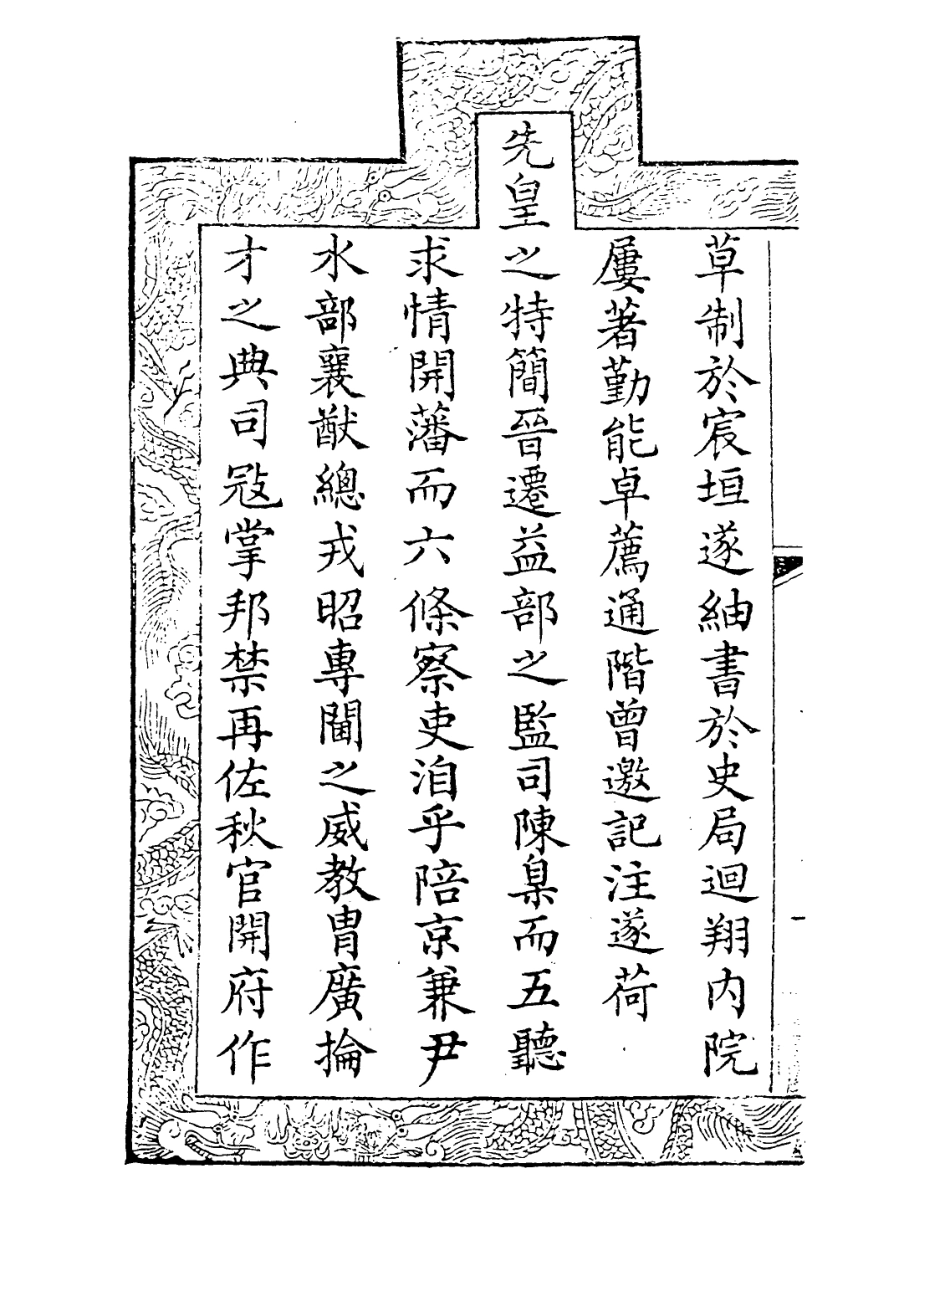 草制於宸垣遂紬書於史局迴翔內院
屢著勤能卓薦通階曾邀記注遂荷
先皇之特簡晉遷益部之監司陳臬而五聽
求情開藩而六條察吏洎乎陪京兼尹
水部襄猷總戎昭專閫之威教胄廣掄
才之典司㓂掌邦禁再佐秋官開府作